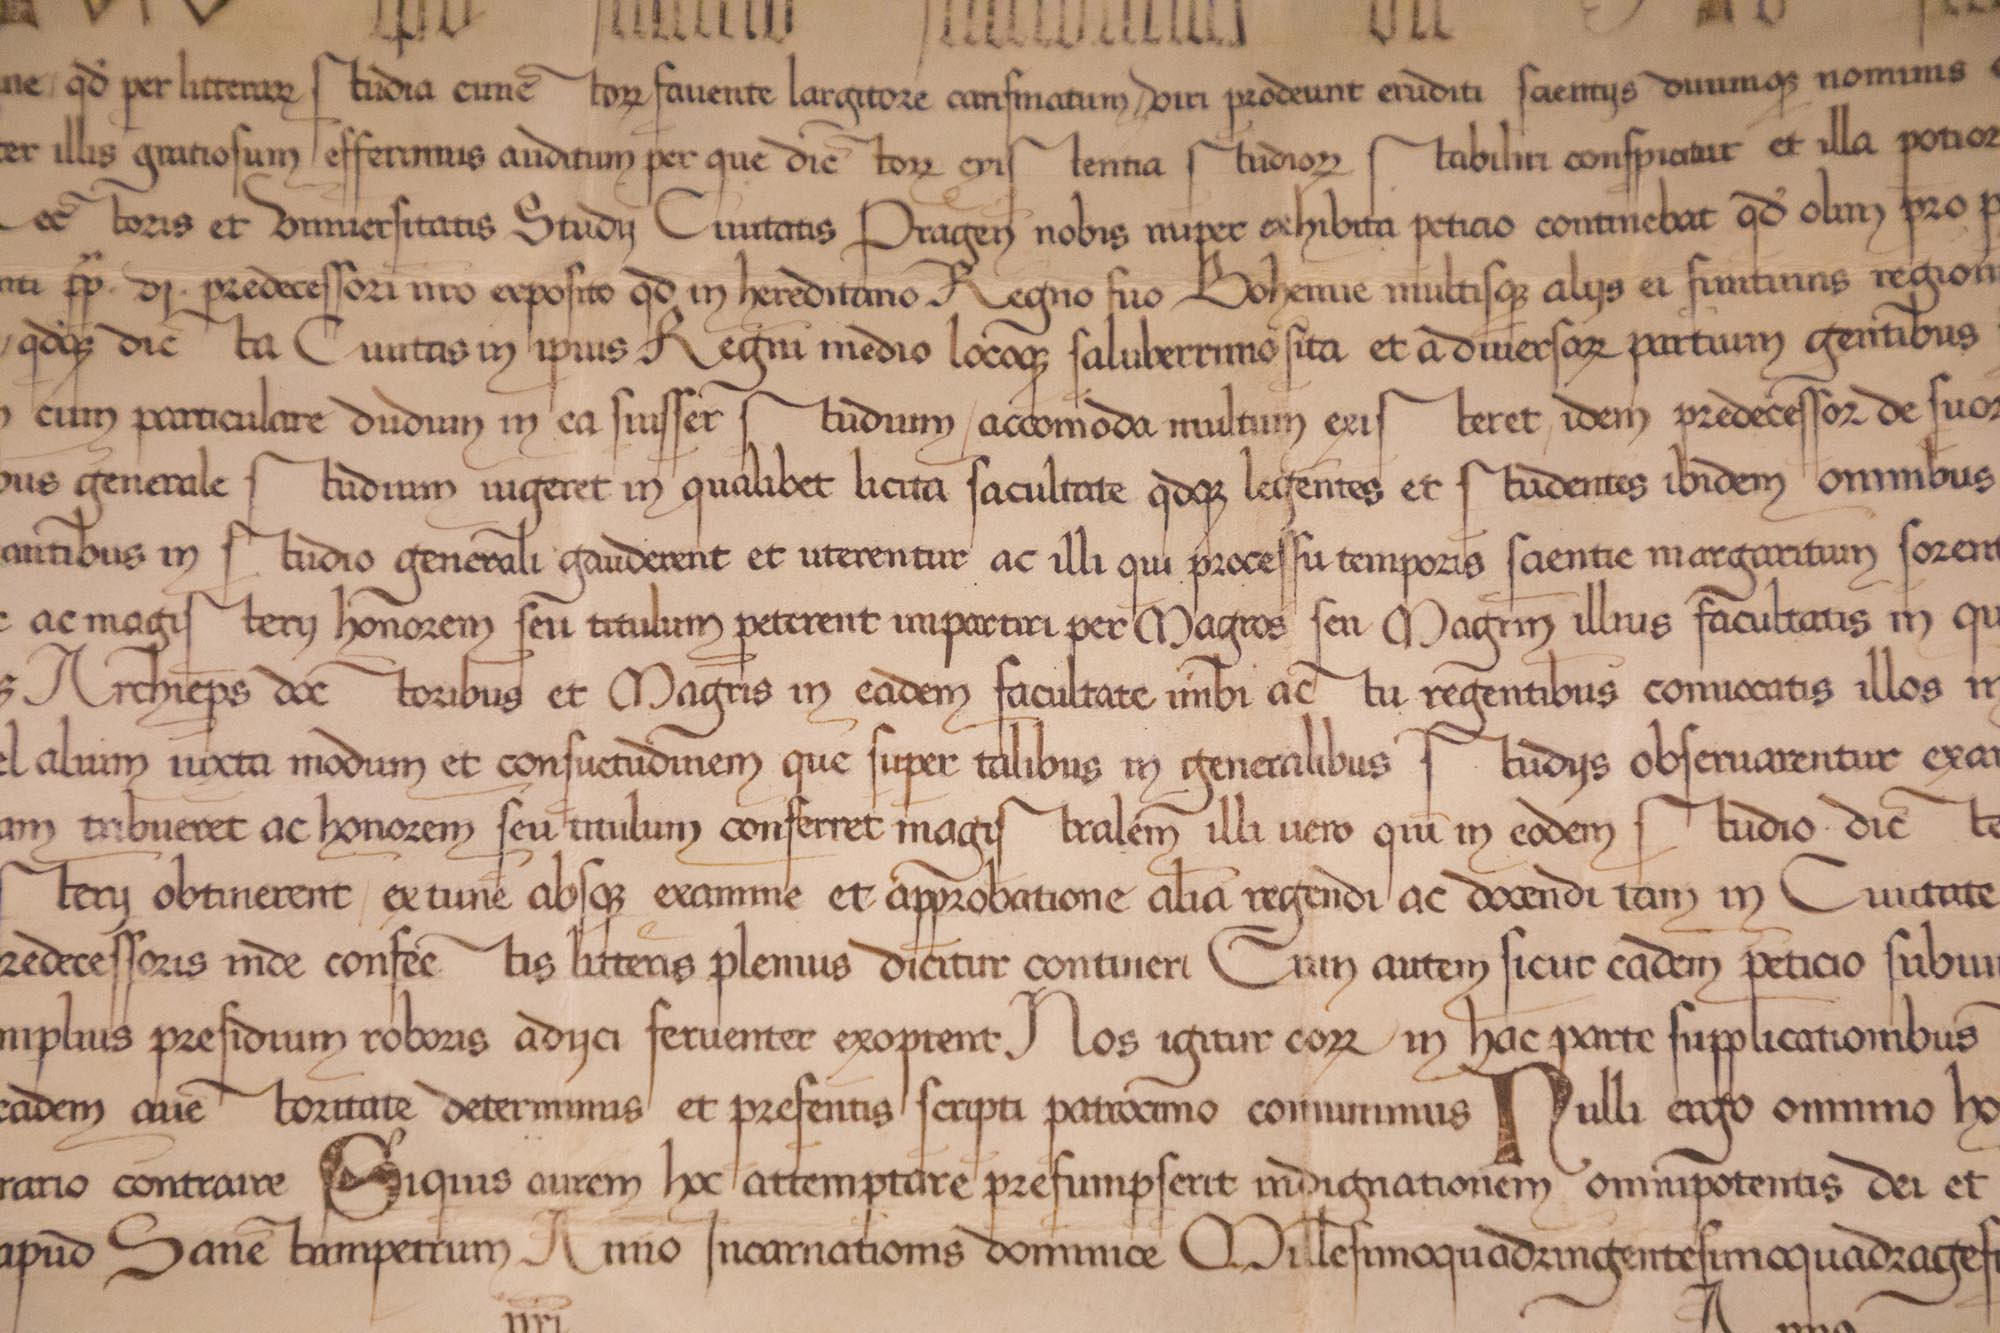 qd per litterarum studia cunctorum favente largitore carismatum viri prodeunt eruditi scientijs diuinique nominis
illis gratiosum efferimus auditum per que dictorum existentia studiorum stabiliri conspiciatur et illa potior
ectoris et Vniuersitatis Studij Ciuitatis Pragen nobis nuper exhibita peticio continebat qd olim pro p
pp vj predecessori nro exposito qd in hereditario Regno suo Bohemie multisque alijs ei finitimis region
qdque dicta Ciuitas in ipsius Regni medio locoque saluberrimo sita et a diuersarum partium gentibus
cum particulare dudum in ea fuisset studium / accomoda multum existeret idem predecessor de suor
bus generale studium uigeret in qualibet licita facultate qdque legentes et studentes ibidem omnibus
antibus in studio generali gauderent et uterentur ac illi qui processu temporis scientie margaritam
ac magisterij honorem seu titulum peterent impartiri per Magros seu Magrm illius facultatis in qu
Archieps doctoribus et Magris in eadem facultate inibi actu regentibus conuocatis illos
el alium iuxta modum et consuetudinem que super talibus in generalibus studijs obseruarentur exam
am tribueret ac honorem seu titulum conferret magistralem illi uero qui in eodem studio dicte
sterij obtinerent / extunc absque examine et approbatione alia regendi ac docendi tam in Ciuitate
redecessoris inde confectis litteris plenius dicitur contineri Cum autem sicut eadem peticio subiun
mplius presidium roboris adijci feruenter exoptent Nos igitur eorum in hac parte supplicationibus
eadem auctoritate determinus et presentis scripti patrocinio comunimus Nulli ergo omnino ho
ratio contraire Siquis autem hoc attemptare presumpserit indignationem omnipotentis dei et
apud Sanctumpetrum Anno Incarnationis dominice Millesimoquadringentesimoquadragesi